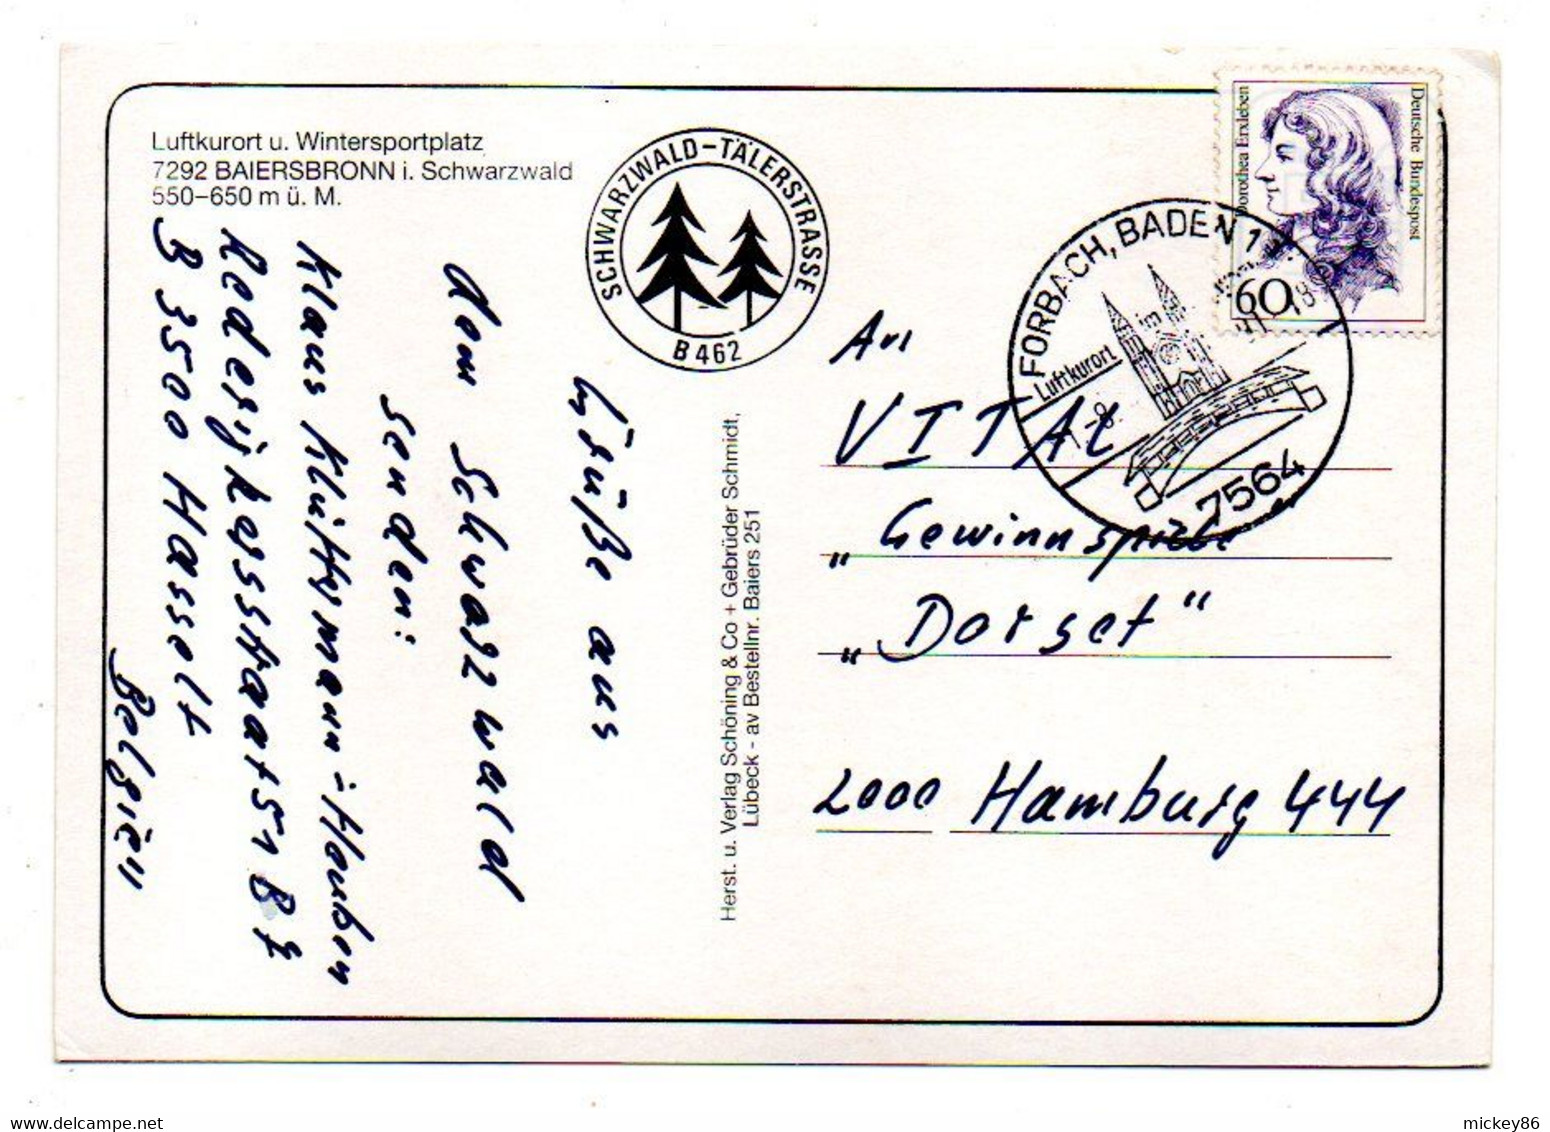 Luftkurort u. Wintersportplatz
7292 BAIERSBRONN i. Schwarzwald
550–650 m ü. M.
SCHWARZWALD-TÄLERSTRASSE
B 462
Grüße aus
dem Schwarzwald
senden:
Klaus Klüttermann-Houben
Rederijkersstraat 51 B
B 3500 Hasselt
Belgien
Herst. u. Verlag Schöning & Co + Gebrüder Schmidt,
Lübeck - av Bestellnr. Baiers 251
Dorothea Erxleben
Deutsche Bundespost
60
FORBACH, BADEN 1
Luftkurort
im
7564
An
VITAL
„Gewinnspiele
„Dorset“
2000 Hamburg 444
mickey86